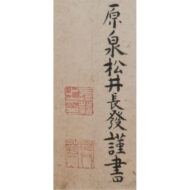 原泉松井長發謹書